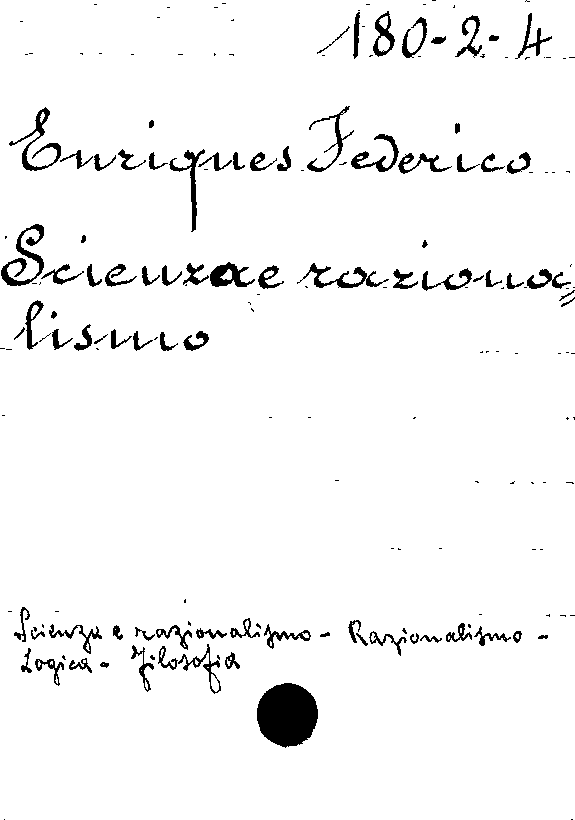 180-2-4
Enriques Federico
Scienza e raziona=
lismo
Scienza e razionalismo - Razionalismo -
Logica - Filosofia